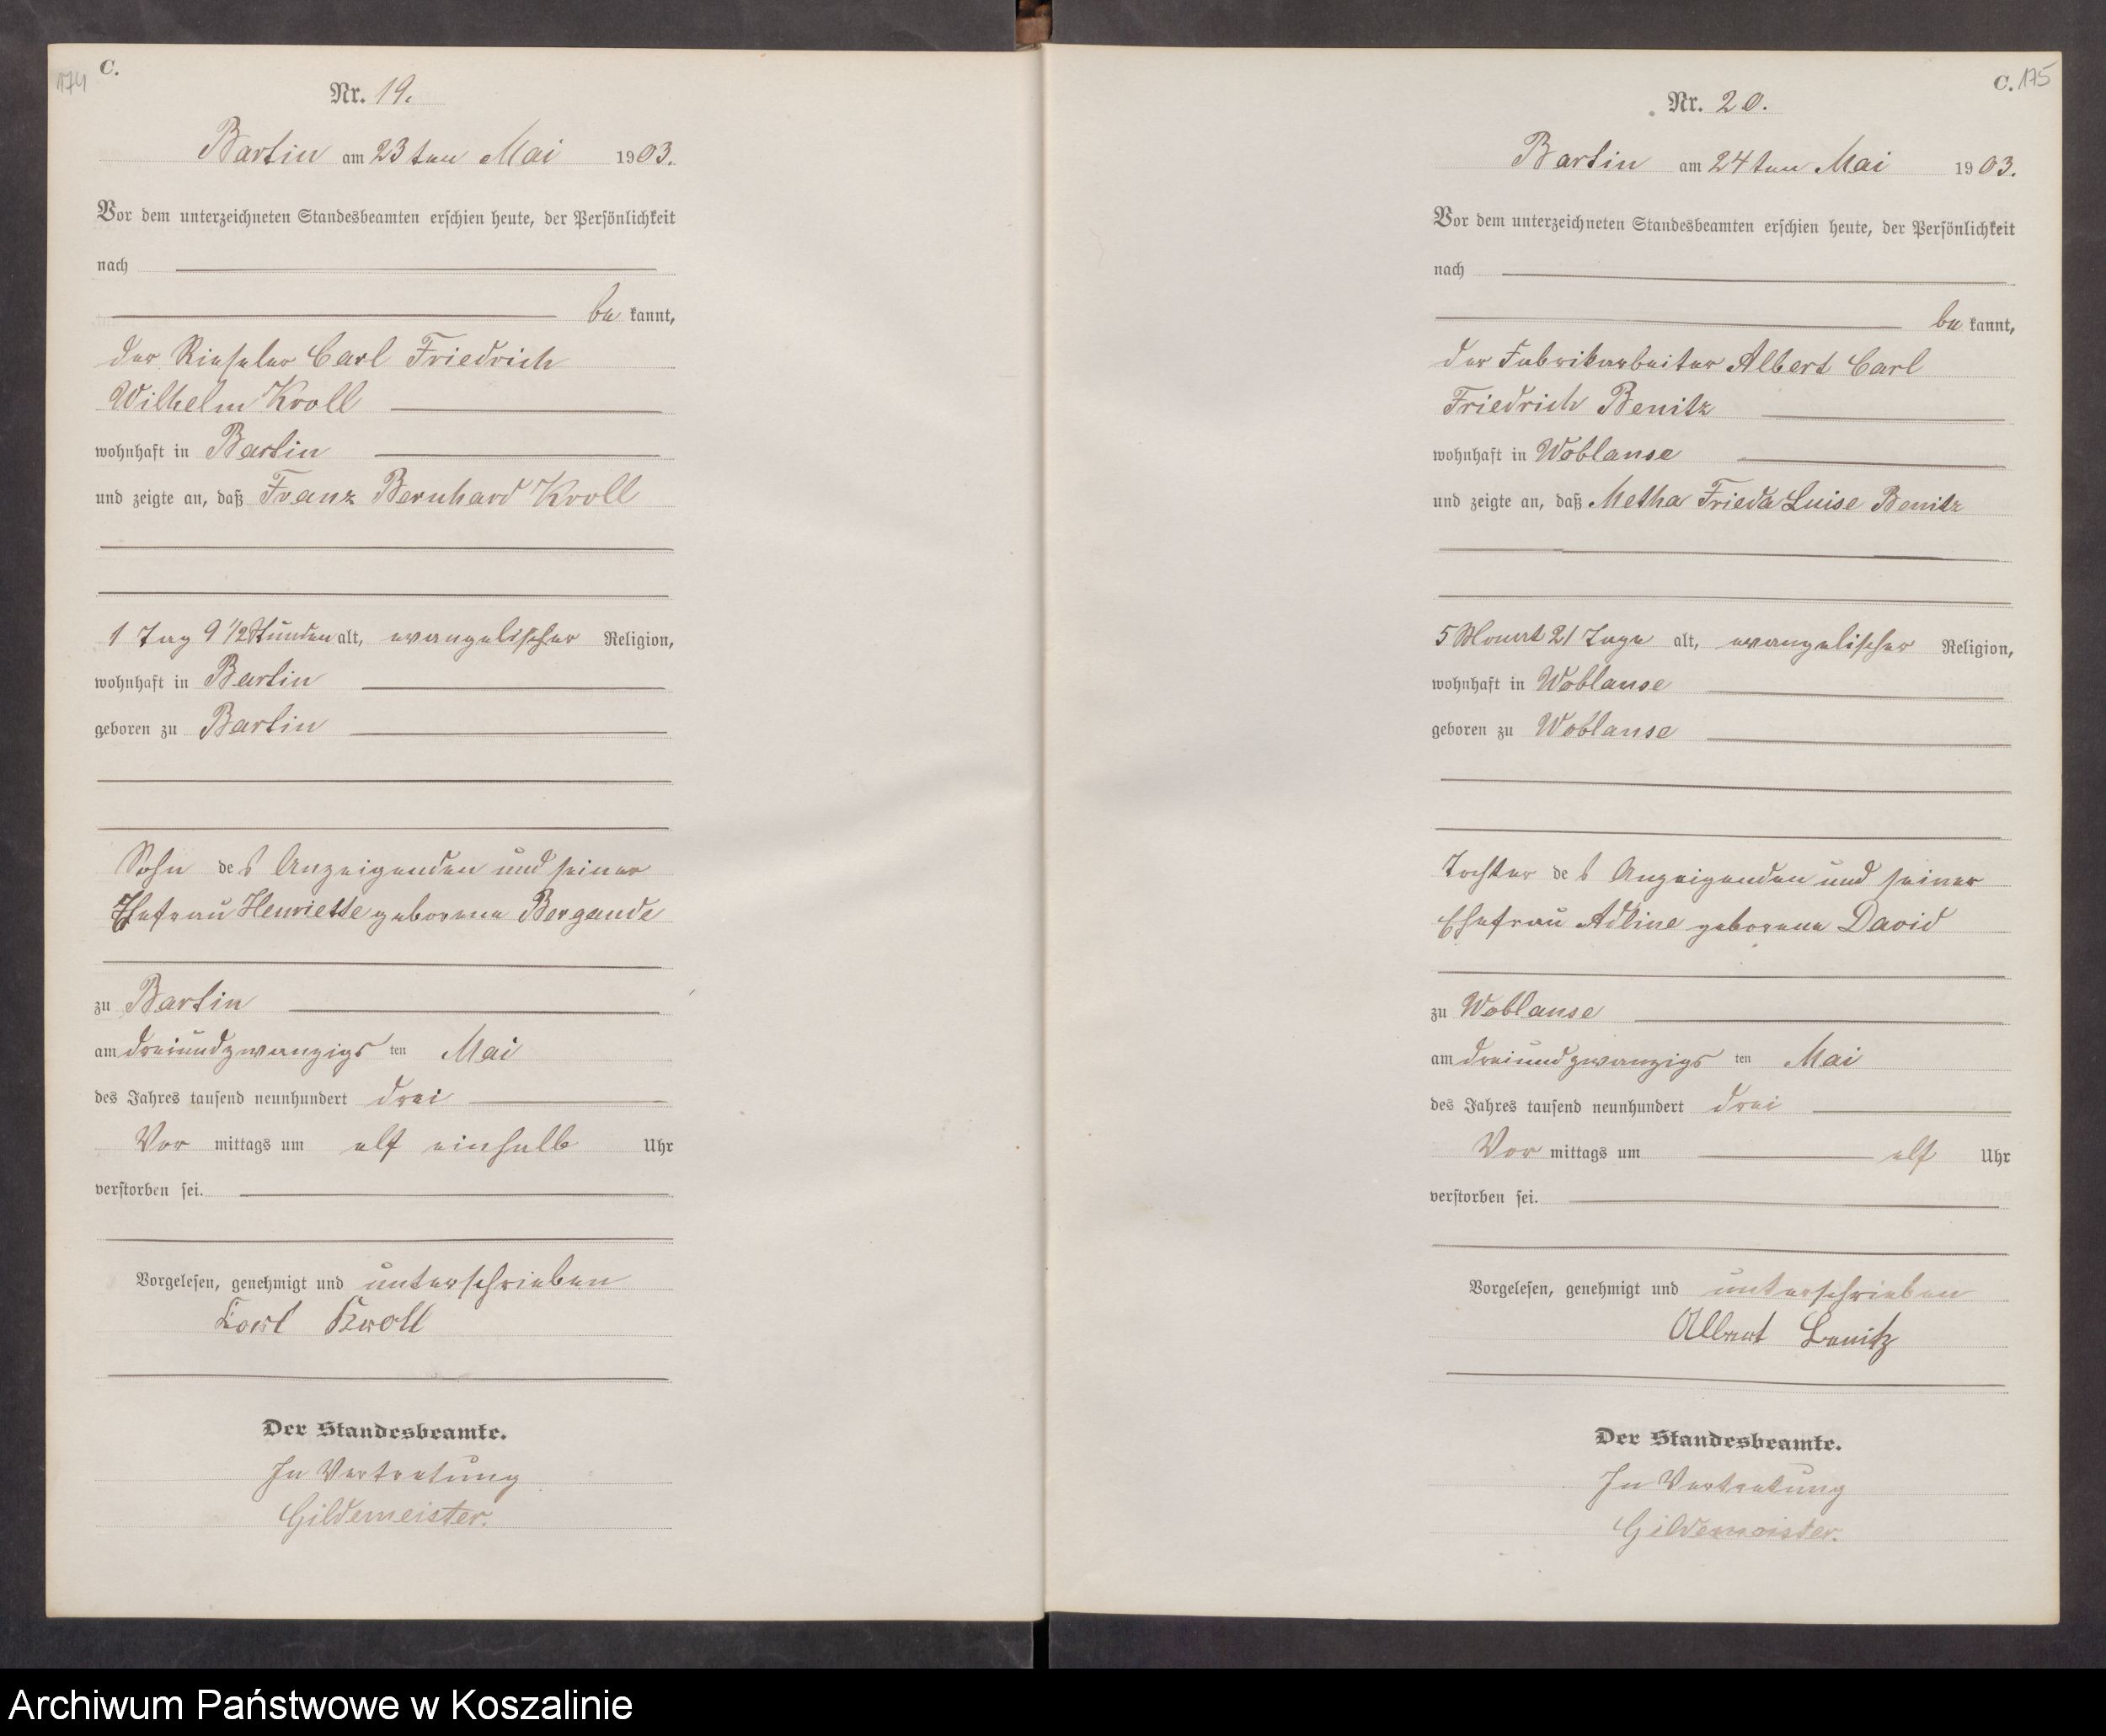 174
C.
Nr. 19.
Bartin am 23ten Mai 1903.
Vor dem unterzeichneten Standesbeamten erschien heute, der Persönlichkeit
nach
be kannt,
der Rieseler Carl Friedrich
Wilhelm Kroll
wohnhaft in Bartin
und zeigte an, daß Franz Bernhard Kroll
1 Tag 9 1/2 Stunden alt, evangelischer Religion,
wohnhaft in Bartin
geboren zu Bartin
Sohn des Anzeigenden und seiner
Ehefrau Henriette geborene Bergande
zu Bartin
am dreiundzwanzigs ten Mai
des Jahres tausend neunhundert drei
Vor mittags um elf einhalb Uhr
verstorben sei.
Vorgelesen, genehmigt und unterschrieben
Karl Kroll
Der Standesbeamte.
In Vertretung
Gildemeister.
C. 175
Nr. 20.
Bartin am 24ten Mai 1903.
Vor dem unterzeichneten Standesbeamten erschien heute, der Persönlichkeit
nach
be kannt,
der Fabrikarbeiter Albert Carl
Friedrich Benitz
wohnhaft in Woblanse
und zeigte an, daß Metha Frieda Luise Benitz
5 Monat 21 Tage alt, evangelischer Religion,
wohnhaft in Woblanse
geboren zu Woblanse
Tochter des Anzeigenden und seiner
Ehefrau Adline geborene David
zu Woblanse
am dreiundzwanzigs ten Mai
des Jahres tausend neunhundert drei
Vor mittags um elf Uhr
verstorben sei.
Vorgelesen, genehmigt und unterschrieben
Albert Benitz
Der Standesbeamte.
In Vertretung
Gildemeister.
Archiwum Państwowe w Koszalinie